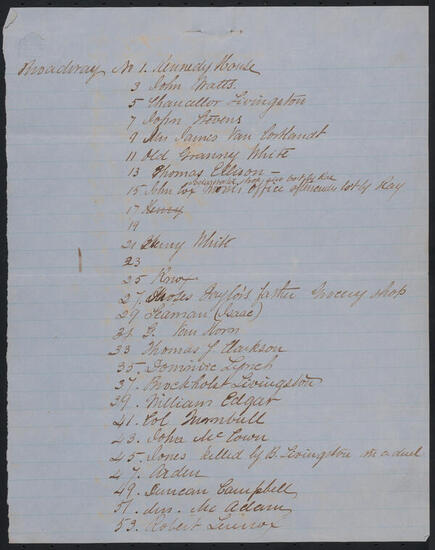 Broadway No 1. Kennedy House
3 John Watts.
5 Chancellor Livingston
7 John Stevens
9 Mrs James Van Cortlandt
11 Old Granny White
13 Thomas Ellison –
15 John Cox office lot by Ray
17 Henry
19
21 Henry White
23
25 Knox
27. Moses Taylor's father Grocery shop
29 Seaman (Isaac)
31 G. Van Horn
33 Thomas S. Clarkson
35. Dominic Lynch
37. Brockholst Livingston
39. William Edgar
41. Col Turnbull
43. John McCown
45. Jones killed by B. Livingston in a duel
47. Arden
49. Duncan Campbell
51. Mrs. McAdam
53. Robert Lennox